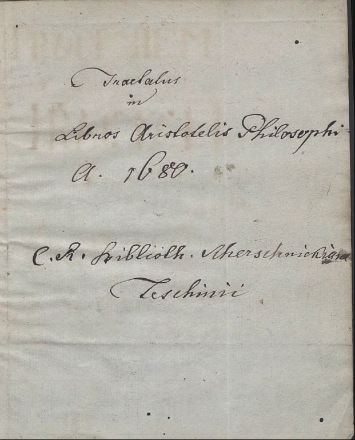 Tractatus
in
Libros Aristotelis Philosophi
A. 1680.
C. R. Biblioth. Scherschnickiana
Teschinii